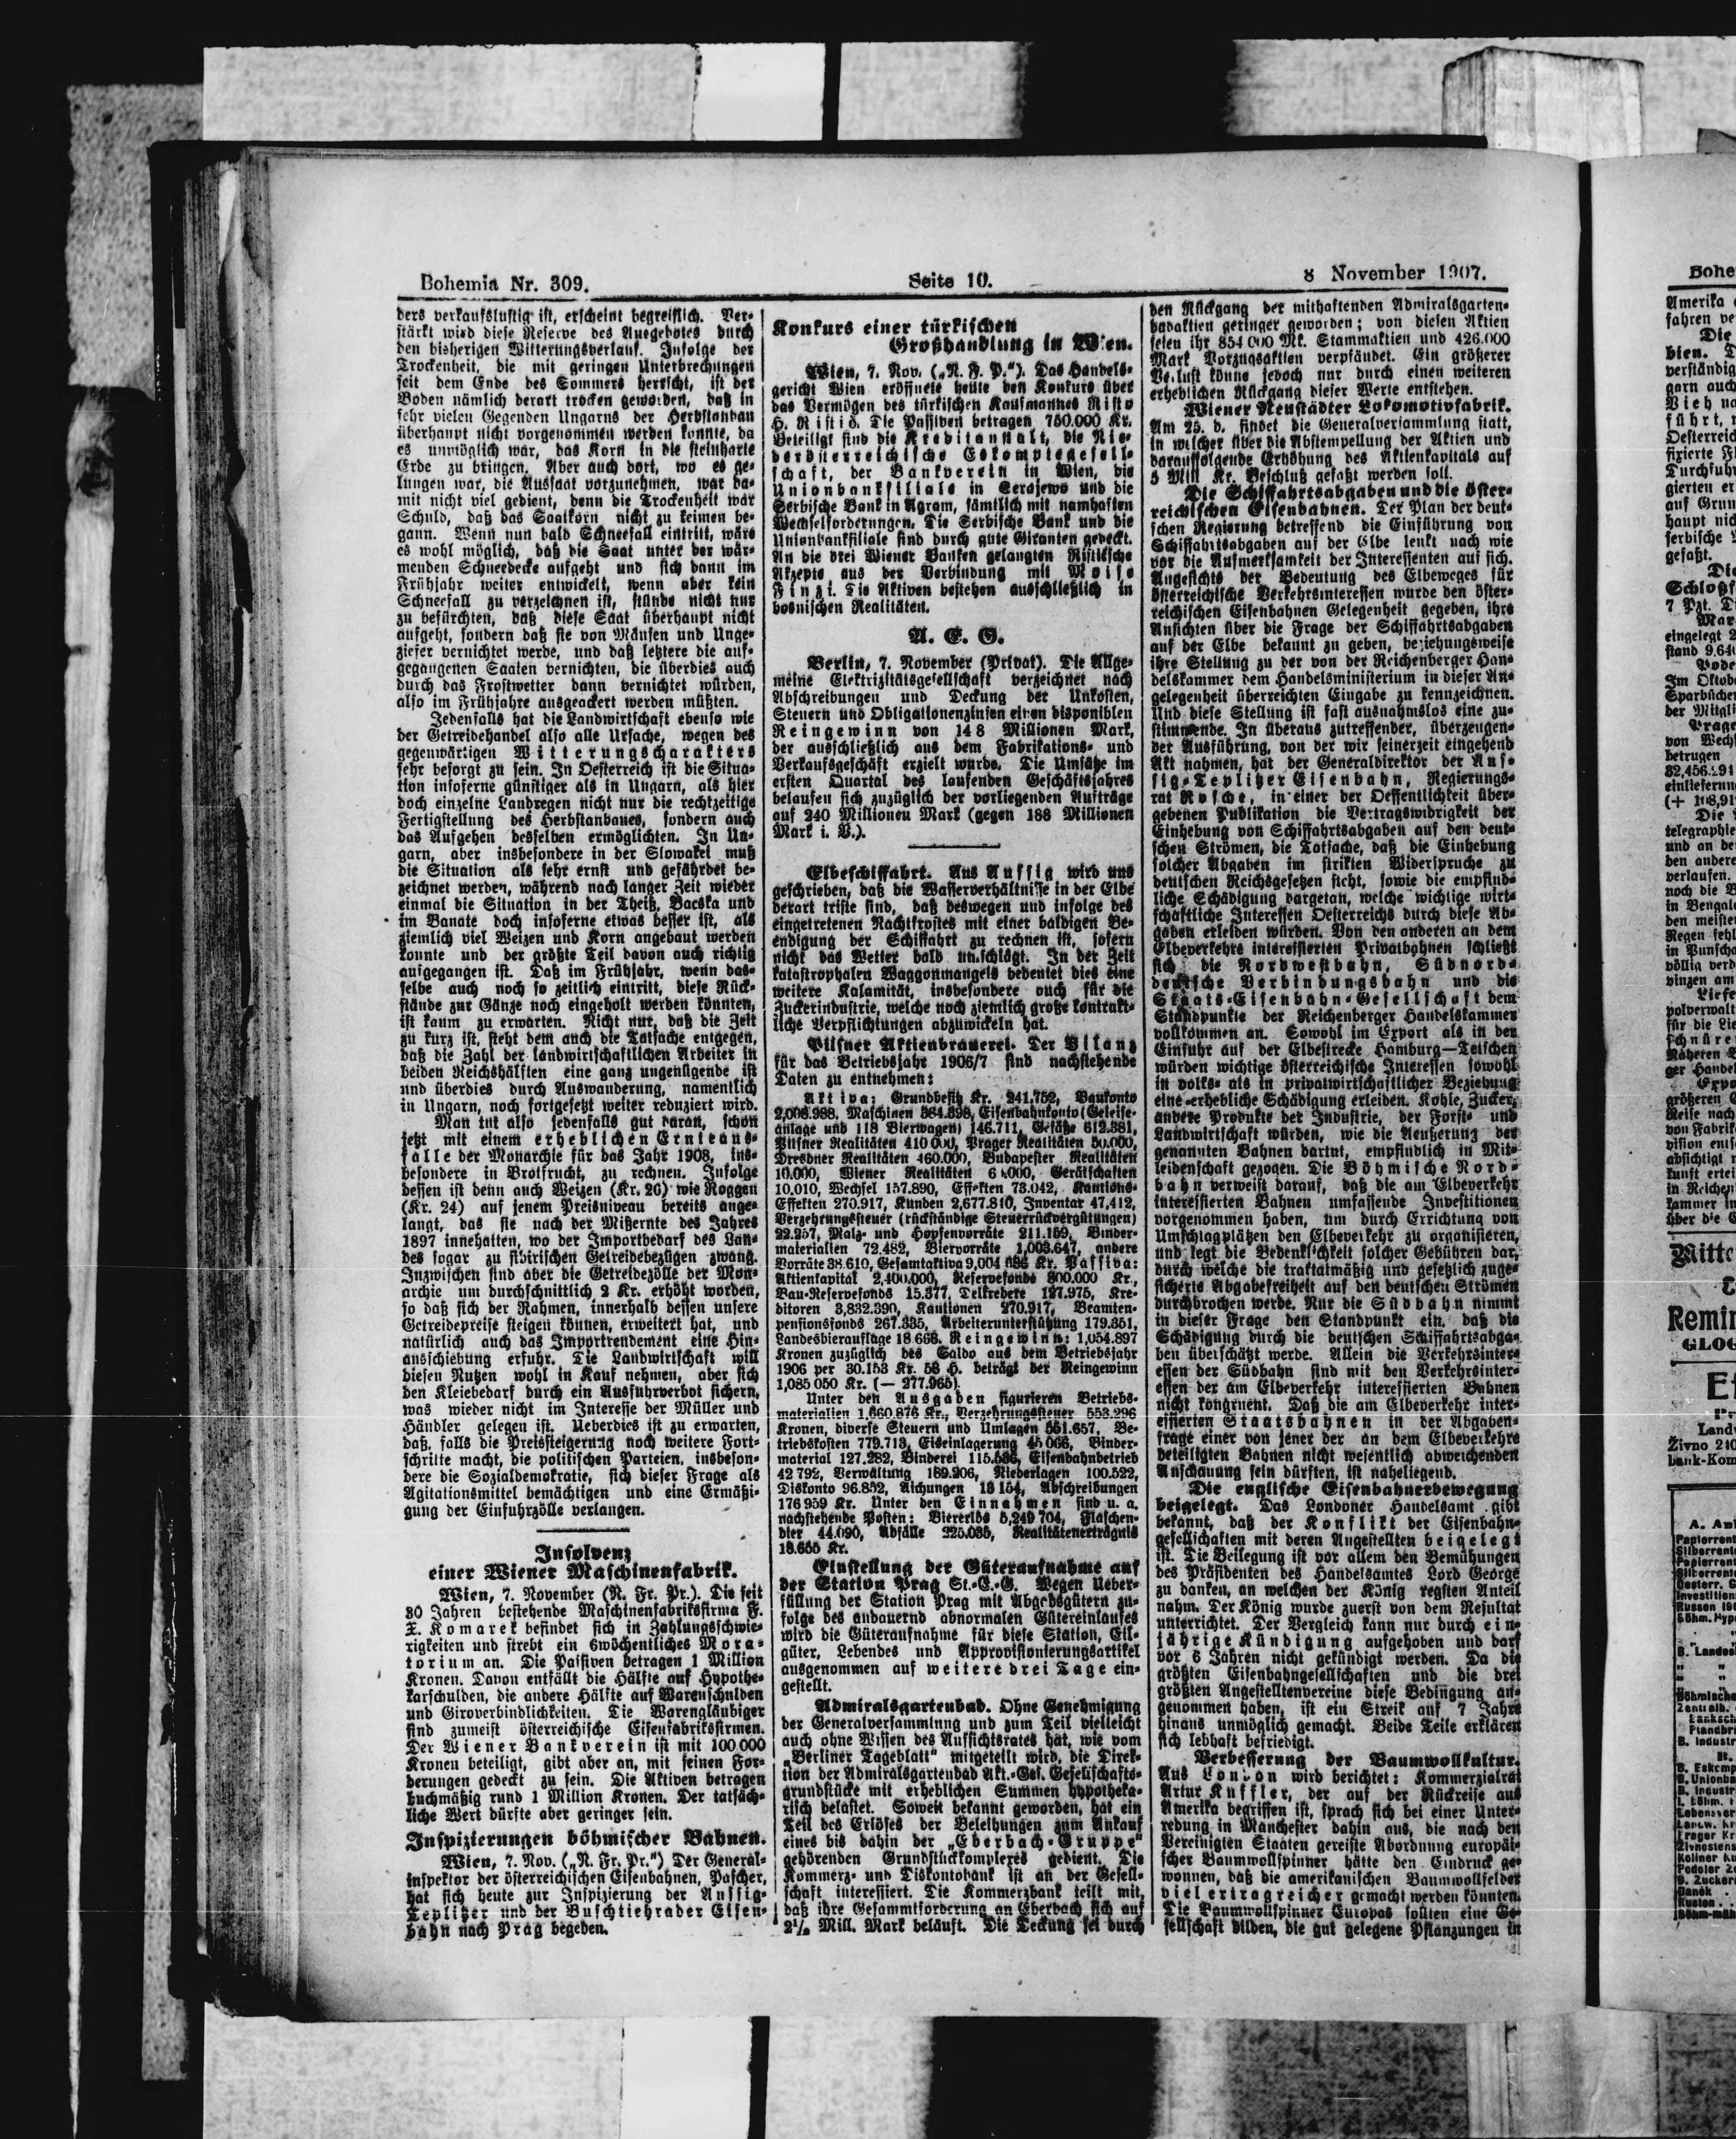 Bohemia Nr. 309.
Seite 10.
8 November 1907.
ders verkaufslustig ist, erscheint begreiflich. Ver-
stärkt wird diese Reserve des Angebotes durch
den bisherigen Witterungsverlauf. Infolge der
Trockenheit, die mit geringen Unterbrechungen
seit dem Ende des Sommers herrscht, ist der
Boden nämlich derart trocken geworden, daß in
sehr vielen Gegenden Ungarns der Herbstanbau
überhaupt nicht vorgenommen werden konnte, da
es unmöglich war, das Korn in die steinharte
Erde zu bringen. Aber auch dort, wo es ge-
lungen war, die Aussaat vorzunehmen, war da-
mit nicht viel gedient, denn die Trockenheit war
Schuld, daß das Saatkorn nicht zu keimen be-
gann. Wenn nun bald Schneefall eintritt, wäre
es wohl möglich, daß die Saat unter der wär-
menden Schneedecke aufgeht und sich dann im
Frühjahr weiter entwickelt, wenn aber kein
Schneefall zu verzeichnen ist, stünde nicht nur
zu befürchten, daß diese Saat überhaupt nicht
aufgeht, sondern daß sie von Mäusen und Unge-
ziefer vernichtet werde, und daß letztere die auf-
gegangenen Saaten vernichten, die überdies auch
durch das Frostwetter dann vernichtet würden,
also im Frühjahre ausgeackert werden müßten.
Jedenfalls hat die Landwirtschaft ebenso wie
der Getreidehandel also alle Ursache, wegen des
gegenwärtigen Witterungscharakters
sehr besorgt zu sein. In Oesterreich ist die Situa-
tion insoferne günstiger als in Ungarn, als hier
doch einzelne Landregen nicht nur die rechtzeitige
Fertigstellung des Herbstanbaues, sondern auch
das Aufgehen desselben ermöglichten. In Un-
garn, aber insbesondere in der Slowakei muß
die Situation als sehr ernst und gefährdet be-
zeichnet werden, während nach langer Zeit wieder
einmal die Situation in der Theiß, Bacska und
im Banate doch insoferne etwas besser ist, als
ziemlich viel Weizen und Korn angebaut werden
konnte und der größte Teil davon auch richtig
aufgegangen ist. Daß im Frühjahr, wenn das-
selbe auch noch so zeitlich eintritt, diese Rück-
stände zur Gänze noch eingeholt werden könnten,
ist kaum zu erwarten. Nicht nur, daß die Zeit
zu kurz ist, steht dem auch die Tatsache entgegen,
daß die Zahl der landwirtschaftlichen Arbeiter in
beiden Reichshälften eine ganz ungenügende ist
und überdies durch Auswanderung, namentlich
in Ungarn, noch fortgesetzt weiter reduziert wird.
Man tut also jedenfalls gut daran, schon
jetzt mit einem erheblichen Ernteaus-
falle der Monarchie für das Jahr 1908, ins-
besondere in Brotfrucht, zu rechnen. Infolge
dessen ist denn auch Weizen (Kr. 26) wie Roggen
(Kr. 24) auf jenem Preisniveau bereits ange-
langt, das sie nach der Mißernte des Jahres
1897 innehatten, wo der Importbedarf des Lan-
des sogar zu sibirischen Getreidebezügen zwang.
Inzwischen sind aber die Getreidezölle der Mon-
archie um durchschnittlich 2 Kr. erhöht worden,
so daß sich der Rahmen, innerhalb dessen unsere
Getreidepreise steigen können, erweitert hat, und
natürlich auch das Importrendement eine Hin-
ausschiebung erfuhr. Die Landwirtschaft will
diesen Nutzen wohl in Kauf nehmen, aber sich
den Kleiebedarf durch ein Ausfuhrverbot sichern,
was wieder nicht im Interesse der Müller und
Händler gelegen ist. Ueberdies ist zu erwarten,
daß, falls die Preissteigerung noch weitere Fort-
schritte macht, die politischen Parteien, insbeson-
dere die Sozialdemokratie, sich dieser Frage als
Agitationsmittel bemächtigen und eine Ermäßi-
gung der Einfuhrzölle verlangen.
Insolvenz
einer Wiener Maschinenfabrik.
Wien, 7. November (N. Fr. Pr.). Die seit
30 Jahren bestehende Maschinenfabriksfirma F.
X. Komarek befindet sich in Zahlungsschwie-
rigkeiten und strebt ein 6wöchentliches Mora-
torium an. Die Passiven betragen 1 Million
Kronen. Davon entfällt die Hälfte auf Hypothe-
karschulden, die andere Hälfte auf Warenschulden
und Giroverbindlichkeiten. Die Warengläubiger
sind zumeist österreichische Eisenfabriksfirmen.
Der Wiener Bankverein ist mit 100 000
Kronen beteiligt, gibt aber an, mit seinen For-
derungen gedeckt zu sein. Die Aktiven betragen
buchmäßig rund 1 Million Kronen. Der tatsäch-
liche Wert dürfte aber geringer sein.
Inspizierungen böhmischer Bahnen.
Wien, 7. Nov. („N. Fr. Pr.") Der General-
inspektor der österreichischen Eisenbahnen, Pascher,
hat sich heute zur Inspizierung der Aussig-
Teplitzer und der Buschtiehrader Eisen-
bahn nach Prag begeben.
Konkurs einer türkischen
Großhandlung in Wien.
Wien, 7. Nov. („N. F. P."). Das Handels-
gericht Wien eröffnete heute den Konkurs über
das Vermögen des türkischen Kaufmannes Risto
H. Ristić. Die Passiven betragen 750.000 Kr.
Beteiligt sind die Kreditanstalt, die Nie-
derösterreichische Eskomptegesell-
schaft, der Bankverein in Wien, die
Unionbankfiliale in Serajewo und die
Serbische Bank in Agram, sämtlich mit namhaften
Wechselforderungen. Die Serbische Bank und die
Unionbankfiliale sind durch gute Giranten gedeckt.
An die drei Wiener Banken gelangten Ristićsche
Akzepte aus der Verbindung mit Moise
Finzi. Die Aktiven bestehen ausschließlich in
bosnischen Realitäten.
A. E. G.
Berlin, 7. November (Privat). Die Allge-
meine Elektrizitätsgesellschaft verzeichnet nach
Abschreibungen und Deckung der Unkosten,
Steuern und Obligationenzinsen einen disponiblen
Reingewinn von 14 8 Millionen Mark,
der ausschließlich aus dem Fabrikations- und
Verkaufsgeschäft erzielt wurde. Die Umsätze im
ersten Quartal des laufenden Geschäftsjahres
belaufen sich zuzüglich der vorliegenden Aufträge
auf 240 Millionen Mark (gegen 188 Millionen
Mark i. V.).
Elbeschiffahrt. Aus Aussig wird uns
geschrieben, daß die Wasserverhältnisse in der Elbe
derart triste sind, daß deswegen und infolge des
eingetretenen Nachtfrostes mit einer baldigen Be-
endigung der Schiffahrt zu rechnen ist, sofern
nicht das Wetter bald umschlägt. In der Zeit
katastrophalen Waggonmangels bedeutet dies eine
weitere Kalamität, insbesondere auch für die
Zuckerindustrie, welche noch ziemlich große kontrakt-
liche Verpflichtungen abzuwickeln hat.
Pilsner Aktienbrauerei. Der Bilanz
für das Betriebsjahr 1906/7 sind nachstehende
Daten zu entnehmen:
Aktiva: Grundbesitz Kr. 241.752, Baukonto
2,008.988, Maschinen 384.898, Eisenbahnkonto (Geleise-
anlage und 118 Bierwagen) 146.711, Gefäße 612.381,
Pilsner Realitäten 410 000, Prager Realitäten 50.000,
Dresdner Realitäten 460.000, Budapester Realitäten
10.000, Wiener Realitäten Gerätschaften
10.010, Wechsel 157.890, Effekten 73.042, Kautions-
Effekten 270.917, Kunden 2,677.810, Inventar 47,412,
Verzehrungssteuer (rückständige Steuerrückvergütungen)
22.257, Malz- und Hopfenvorräte 211.159, Binder-
materialien 72.482, Biervorräte 1,003.647, andere
Vorräte 38.610, Gesamtaktiva Kr. Passiva:
Aktienkapital 2,400.000, Reservefonds 800.000 Kr.,
Bau-Reservefonds 15.377, Delkredere 127.975, Kre-
ditoren 3,832.390, Kautionen 270.917, Beamten-
pensionsfonds 267.335, Arbeiterunterstützung 179.351,
Landesbierauflage 18 668. Reingewinn: 1,054.897
Kronen zuzüglich des Saldo aus dem Betriebsjahr
1906 per 30.153 Kr. 58 H. beträgt der Reingewinn
1,085 050 Kr. (— 277.965).
Unter den Ausgaben figurieren Betriebs-
materialien 1,660.876 Kr., Verzehrungssteuer 553.296
Kronen, diverse Steuern und Umlagen 551.657, Be-
triebskosten 779.713, Eiseinlagerung 45 066, Binder-
material 127.282, Binderei Eisenbahnbetrieb
42 792, Verwaltung 189.206, Niederlagen 100.522,
Diskonto 96.852, Aichungen 13 154, Abschreibungen
176 959 Kr. Unter den Einnahmen sind u. a.
nachstehende Posten: Biererlös 5,249 704, Flaschen-
bier 44.090, Abfälle 225.035, Realitätenerträgnis
18.655 Kr.
Einstellung der Güteraufnahme auf
der Station Prag St.-E.-G. Wegen Ueber-
füllung der Station Prag mit Abgabsgütern zu-
folge des andauernd abnormalen Gütereinlaufes
wird die Güteraufnahme für diese Station, Eil-
güter, Lebendes und Approvisionierungsartikel
ausgenommen auf weitere drei Tage ein-
gestellt.
Admiralsgartenbad. Ohne Genehmigung
der Generalversammlung und zum Teil vielleicht
auch ohne Wissen des Aufsichtsrates hat, wie vom
„Berliner Tageblatt" mitgeteilt wird, die Direk-
tion der Admiralsgartenbad Akt.-Ges. Gesellschafts-
grundstücke mit erheblichen Summen hypotheka-
risch belastet. Soweit bekannt geworden, hat ein
Teil des Erlöses der Beleihungen zum Ankauf
eines bis dahin der „Eberbach-Gruppe"
gehörenden Grundstückkomplexes gedient. Die
Kommerz- und Diskontobank ist an der Gesell-
schaft interessiert. Die Kommerzbank teilt mit,
daß ihre Gesammtforderung an Eberbach sich auf
2½ Mill. Mark beläuft. Die Deckung sei durch
den Rückgang der mithaftenden Admiralsgarten-
badaktien geringer geworden; von diesen Aktien
seien ihr 854 000 Mk. Stammaktien und 426.000
Mark Vorzugsaktien verpfändet. Ein größerer
Verlust könne jedoch nur durch einen weiteren
erheblichen Rückgang dieser Werte entstehen.
Wiener Neustädter Lokomotivfabrik.
Am 25. d. findet die Generalversammlung statt,
in welcher über die Abstempellung der Aktien und
darauffolgende Erhöhung des Aktienkapitals auf
5 Mill Kr. Beschluß gefaßt werden soll.
Die Schiffahrtsabgaben und die öster-
reichischen Eisenbahnen. Der Plan der deut-
schen Regierung betreffend die Einführung von
Schiffahrtsabgaben auf der Elbe lenkt nach wie
vor die Aufmerksamkeit der Interessenten auf sich.
Angesichts der Bedeutung des Elbeweges für
österreichische Verkehrsinteressen wurde den öster-
reichischen Eisenbahnen Gelegenheit gegeben, ihre
Ansichten über die Frage der Schiffahrtsabgaben
auf der Elbe bekannt zu geben, beziehungsweise
ihre Stellung zu der von der Reichenberger Han-
delskammer dem Handelsministerium in dieser An-
gelegenheit überreichten Eingabe zu kennzeichnen.
Und diese Stellung ist fast ausnahmslos eine zu-
stimmende. In überaus zutreffender, überzeugen-
der Ausführung, von der wir seinerzeit eingehend
Akt nahmen, hat der Generaldirektor der Aus-
sig-Teplitzer Eisenbahn, Regierungs-
rat Rosche, in einer der Oeffentlichkeit über-
gebenen Publikation die Vertragswidrigkeit der
Einhebung von Schiffahrtsabgaben auf den deut-
schen Strömen, die Tatsache, daß die Einhebung
solcher Abgaben im strikten Widerspruche zu
deutschen Reichsgesetzen steht, sowie die empfind-
liche Schädigung dargetan, welche wichtige wirt-
schaftliche Interessen Oesterreichs durch diese Ab-
gaben erleiden würden. Von den anderen an dem
Elbeverkehre interessierten Privatbahnen schließt
sich die Nordwestbahn, Südnord-
deutsche Verbindungsbahn und die
Staats-Eisenbahn-Gesellschaft dem
Standpunkte der Reichenberger Handelskammer
vollkommen an. Sowohl im Export als in der
Einfuhr auf der Elbestrecke Hamburg—Tetschen
würden wichtige österreichische Interessen sowohl
in volks- als in privatwirtschaftlicher Beziehung
eine erhebliche Schädigung erleiden. Kohle, Zucker,
andere Produkte der Industrie, der Forst- und
Landwirtschaft würden, wie die Aeußerung der
genannten Bahnen dartut, empfindlich in Mit-
leidenschaft gezogen. Die Böhmische Nord-
bahn verweist darauf, daß die am Elbeverkehr
interessierten Bahnen umfassende Investitionen
vorgenommen haben, um durch Errichtung von
Umschlagplätzen den Elbeverkehr zu organisieren,
und legt die Bedenklichkeit solcher Gebühren dar,
durch welche die traktatmäßig und gesetzlich zuge-
sicherte Abgabefreiheit auf den deutschen Strömen
durchbrochen werde. Nur die Südbahn nimmt
in dieser Frage den Standpunkt ein, daß die
Schädigung durch die deutschen Schiffahrtsabga-
ben überschätzt werde. Allein die Verkehrsinter-
essen der Südbahn sind mit den Verkehrsinter-
essen der am Elbeverkehr interessierten Bahnen
nicht kongruent. Daß die am Elbeverkehr inter-
essierten Staatsbahnen in der Abgaben-
frage einer von jener der an dem Elbeverkehre
beteiligten Bahnen nicht wesentlich abweichenden
Anschauung sein dürften, ist naheliegend.
Die englische Eisenbahnerbewegung
beigelegt. Das Londoner Handelsamt gibt
bekannt, daß der Konflikt der Eisenbahn-
gesellschaften mit deren Angestellten beigelegt
ist. Die Beilegung ist vor allem den Bemühungen
des Präsidenten des Handelsamtes Lord George
zu danken, an welchen der König regsten Anteil
nahm. Der König wurde zuerst von dem Resultat
unterrichtet. Der Vergleich kann nur durch ein-
jährige Kündigung aufgehoben und darf
vor 6 Jahren nicht gekündigt werden. Da die
größten Eisenbahngesellschaften und die drei
größten Angestelltenvereine diese Bedingung an-
genommen haben, ist ein Streik auf 7 Jahre
hinaus unmöglich gemacht. Beide Teile erklären
sich lebhaft befriedigt.
Verbesserung der Baumwollkultur.
Aus London wird berichtet: Kommerzialrat
Artur Kuffler, der auf der Rückreise aus
Amerika begriffen ist, sprach sich bei einer Unter-
redung in Manchester dahin aus, die nach den
Vereinigten Staaten gereiste Abordnung europäi-
scher Baumwollspinner hätte den Eindruck ge-
wonnen, daß die amerikanischen Baumwollfelder
viel ertragreicher gemacht werden könnten.
Die Baumwollspinner Europas sollten eine Ge-
sellschaft bilden, die gut gelegene Pflanzungen in